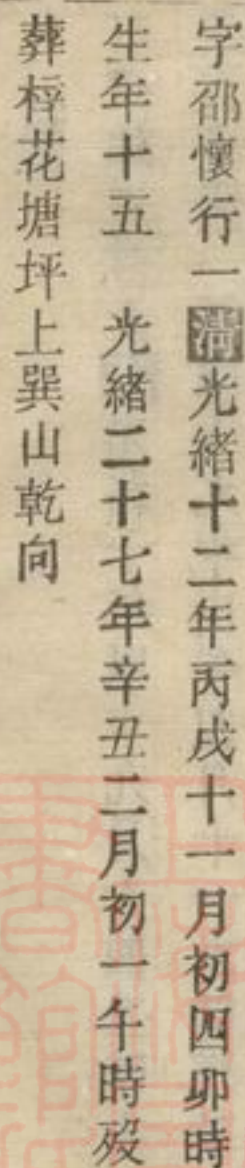 字邵懷行一清光緒十二年丙戌十一月初四卯時
生年十五　光緒二十七年辛丑二月初一午時殁
葬梓花塘坪上巽山乾向